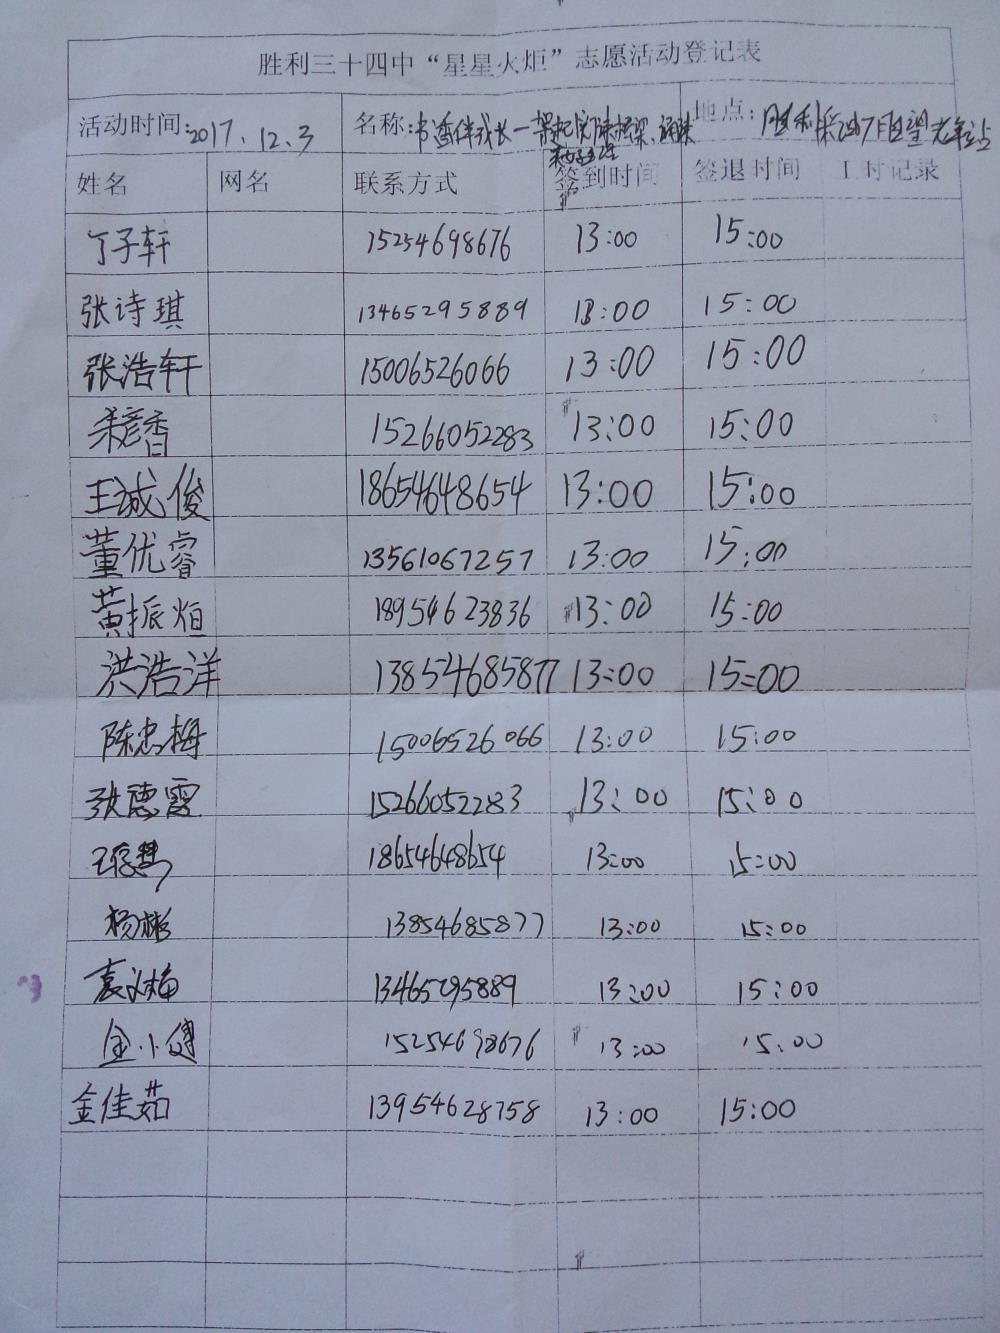 胜利三十四中“星星火炬”志愿活动登记表
活动时间:2017.12.3 名称:书香伴成长—架起阅读桥梁、诵读 地点:胜利
姓名 网名 联系方式 签到时间 签退时间 工时记录
丁子轩 15254698676 13:00 15:00
张诗琪 13465295889 13:00 15:00
张浩轩 15006526066 13:00 15:00
15266052283 13:00 15:00
王诚俊 18654648654 13:00 15:00
董优睿 13561067257 13:00 15:00
黄振烜 18954623836 13:00 15:00
洪浩洋 13854685877 13:00 15:00
陈忠梅 15006526066 13:00 15:00
张德霞 15266052283 13:00 15:00
18654648654 13:00 15:00
杨彬 13854685877 13:00 15:00
13465295889 13:00 15:00
金小健 15254698676 13:00 15:00
金佳茹 13954628758 13:00 15:00